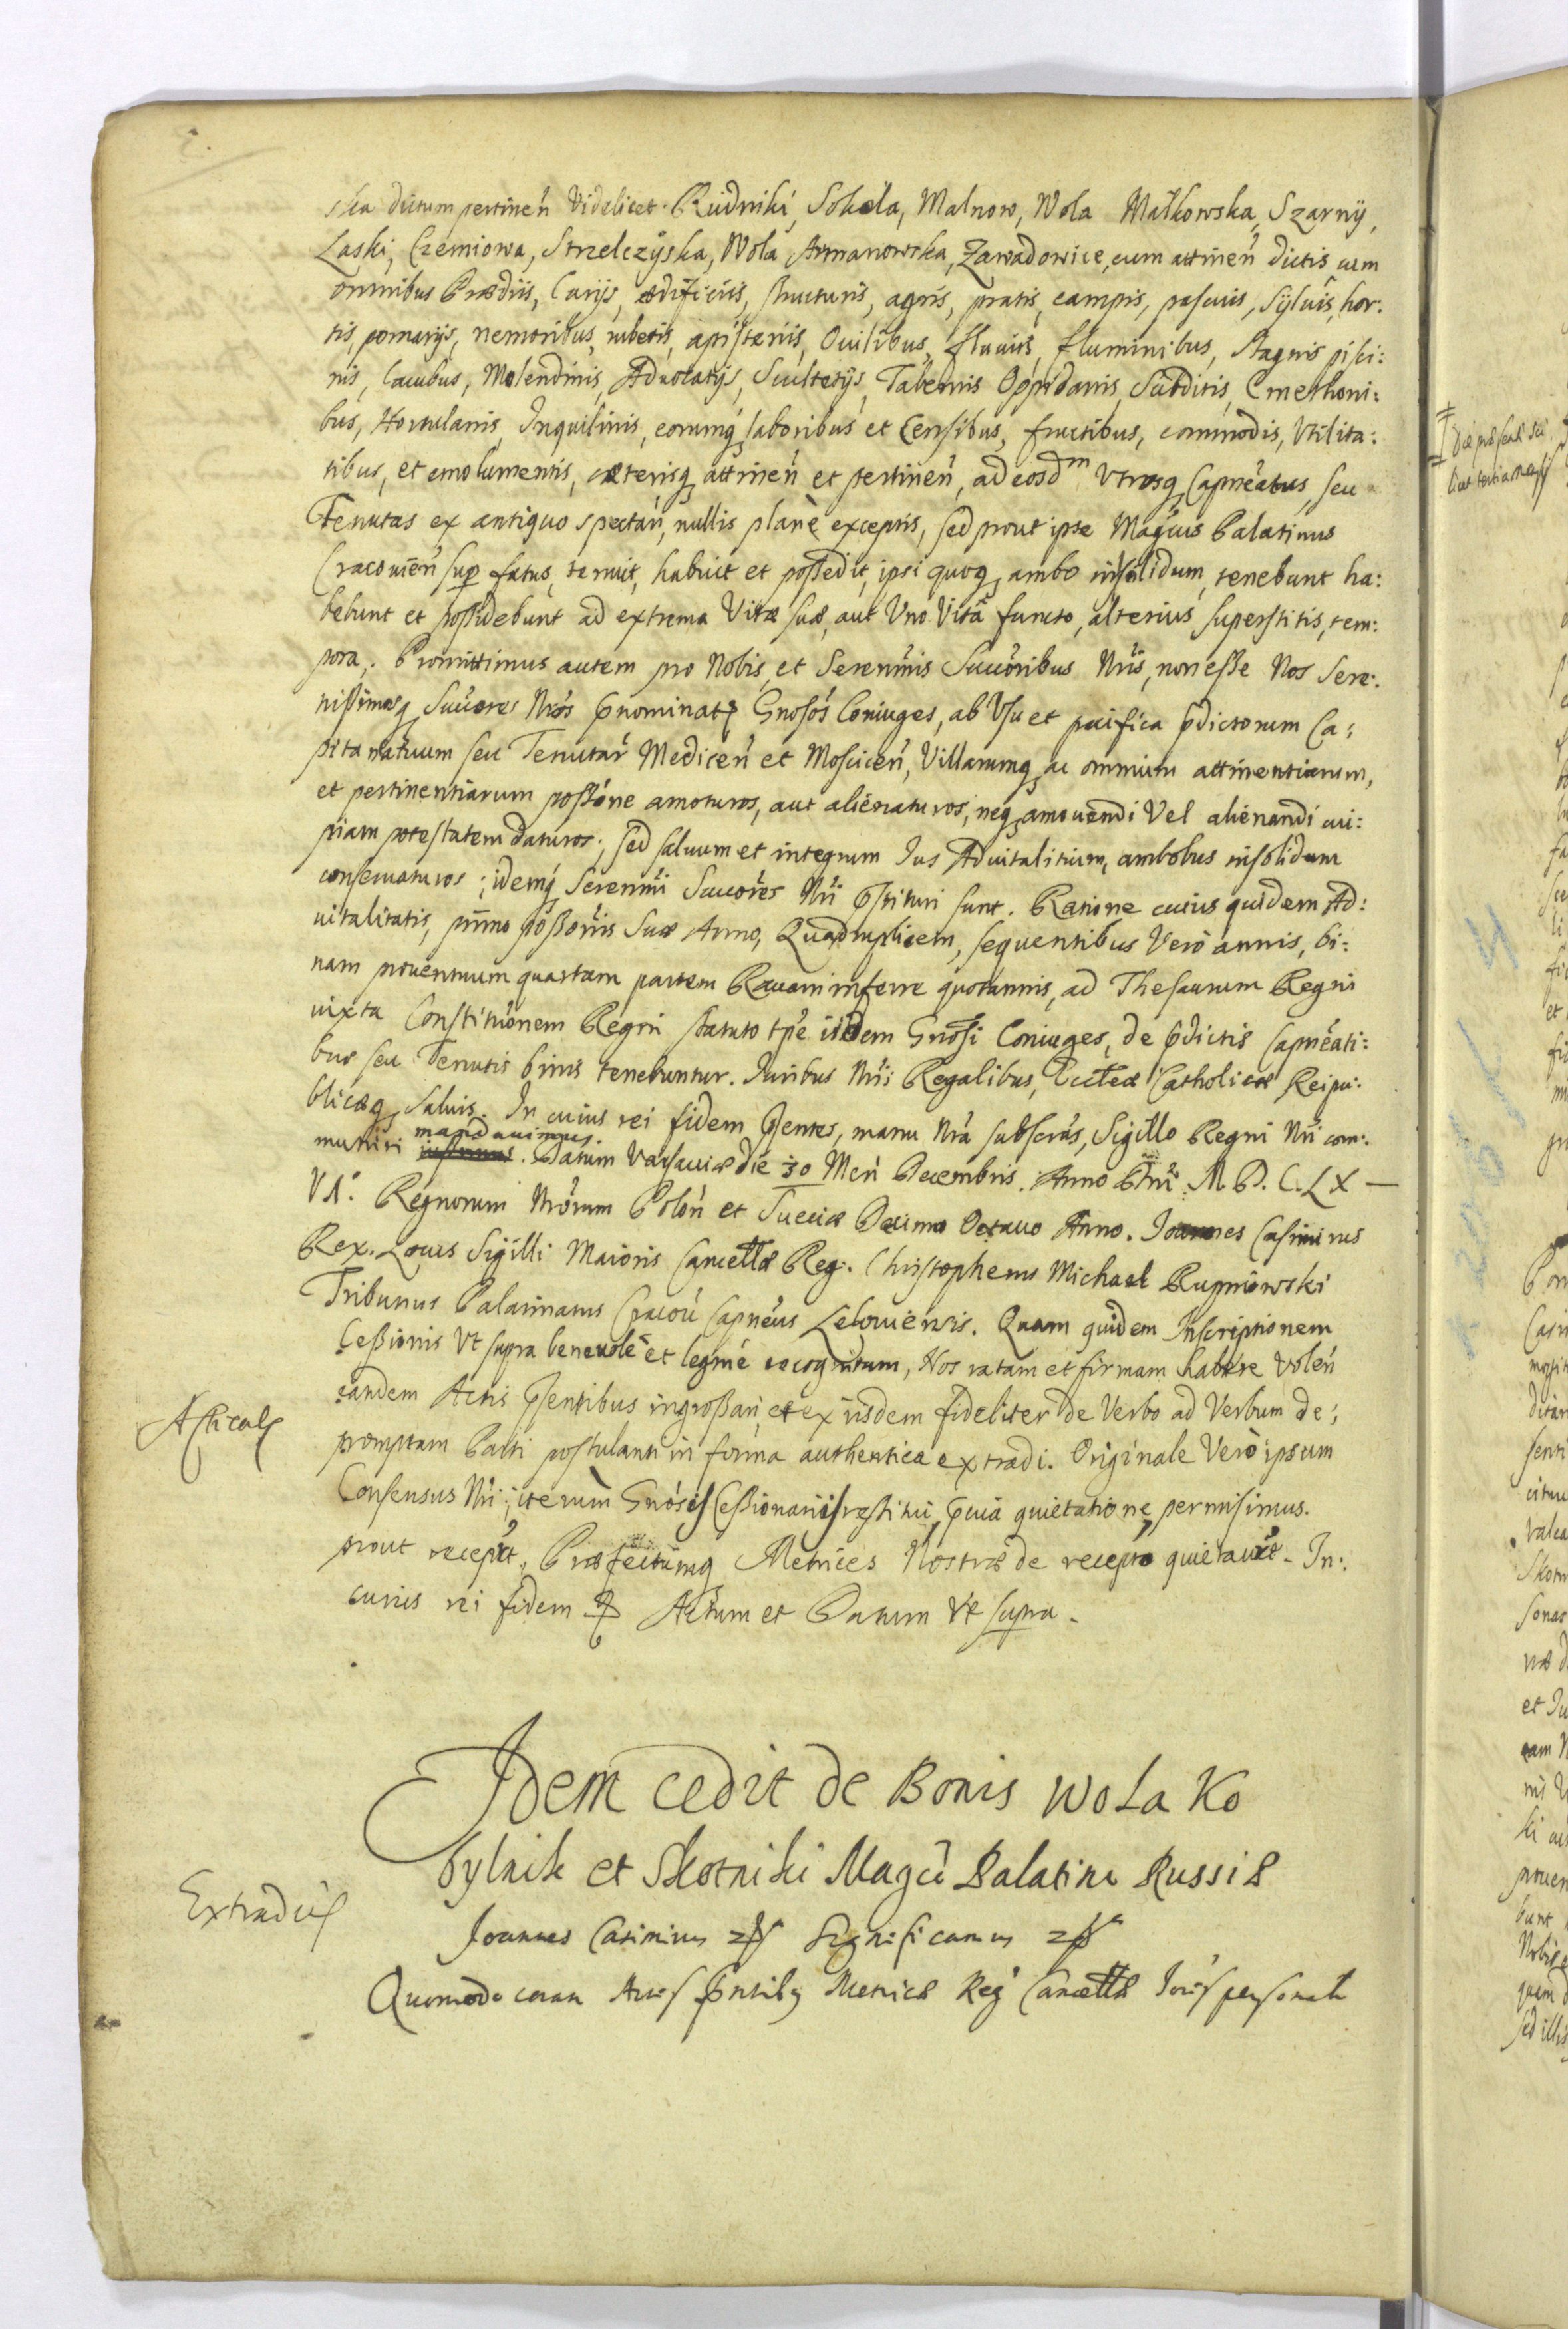 ska dictum pertineń Videlicet. Rudniki, Sokola, Malnow, Wola Małkowska, Szarny,
Laski, Czerniowa, Strzelczyska, Wola Armanowska, Zawadowice, cum attineń dictis cum
omnibus Prædiis, Curijs, ædificiis, structuris, agris, pratis, campis, pascuis, Sÿluis, hor:
tis, pomarijs, nemoribus, rubetis, apisteriis, Ouilibus, fluuiis, fluminibus, Stagnis pisci:
nis, Lacubus, Molendinis, Aduocatijs, Scultetijs, Tabernis Oppidanis, Subditis, Cmethoni:
bus, Hortulanis, Inquilinis, eorumq laboribus et Censibus, fructibus, commodis, Vtilita:
tibus, et emolumentis, cæterisq attineń et pertineń, ad eosdm Vtrosq Capneatus, seu
Tenutas ex antiquo spectań, nullis planè exceptis, sed prout ipse Magcus Palatinus
Cracouień sup fatus, tenuit, habuit et possedit, ipsi quoq ambo insolidum, tenebunt ha:
bebunt et possidebunt ad extrema Vitæ suæ, aut Vno Vitâ functo, alterius superstitis, tem:
pora. Promittimus autem pro Nobis, et Serenmis Succoribus Nris, non esse Nos Sere:
nissimosq Succores Nros pnominatos Gnosos Coniuges, ab Vsu et pacifica pdictorum Ca:
pitanatuum seu Tenutar Mediceń et Mosciceń, Villarumq ac omnium attinentiarum,
et pertinentiarum possone amoturos, aut alienaturos, neq amouendi Vel alienandi cui:
piam potestatem daturos; sed saluum et integrum Ius Aduitalitium, ambobus insolidum
conseruaturos; idemq Serenmi Succores Nri pstituri sunt. Ratione cuius quidem Ad:
uitalitatis, primo possonis Suæ Anno, Quadruplicem, sequentibus Verò annis, bi:
nam prouentuum quartam partem Rauam inferre quotannis, ad Thesaurum Regni
iuxta Constituonem Regni statuto tpe iidem Gnosi Coniuges, de pdictis Capneati:
bus seu Tenutis binis tenebuntur. Iuribus Nris Regalibus, Ecclæ Catholicæ Reipu:
blicæq saluis. In cuius rei fidem psentes, manu Nra subscras, Sigillo Regni Nri com:
muniri mandauimus. Datum Varsauiæ die 30 Meń Decembris. Anno Dni M.D.C.LX
VI. Regnorum Nrorum Poloń et Sueciæ Decimo Octauo Anno. Ioannes Casimirus
Rex. Locus Sigilli Maioris Cancellæ Reg. Christophorus Michael Rupniowski
Tribunus Palatinatus Cracou Capneus Lelouiensis. Quam quidem Inscriptionem
Cessionis Vt supra beneuolè et legme recognitam, Nos ratam et firmam habere Voleń
eandem Actis psentibus ingrossari, et ex iisdem fideliter de Verbo ad Verbum de:
promptam Parti postulanti in forma authentica extradi. Originale Verò ipsum
Consensus Nri, iterum Gnosis Cessionariis restitui, quietatione permisimus.
prout recepit, Præfectumq Metrices Nostræ de recepto quietauit. In:
cuius rei fidem Actum et Datum Vt supra.
Idem cedit de Bonis Wola Ko
bylnik et Skotniki Magco Palatino Russiæ
Extradit
Ioannes Casimirus Significamus
Quomodo coram Actis pntibq Metricæ Reg Cancellæ personalr